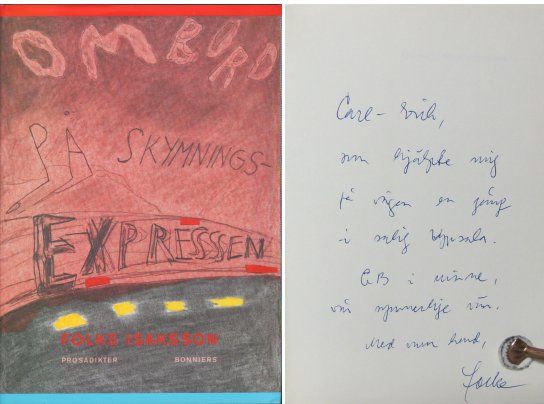 OMBORD
PÅ SKYMNINGS-
EXPRESSSEN
FOLKE ISAKSSON
PROSADIKTER BONNIERS
Carl-Erik,
som hjälpte mig
på vägen en gång
i salig Uppsala.
GB i minne,
vår vän.
Med min hand,
Folke